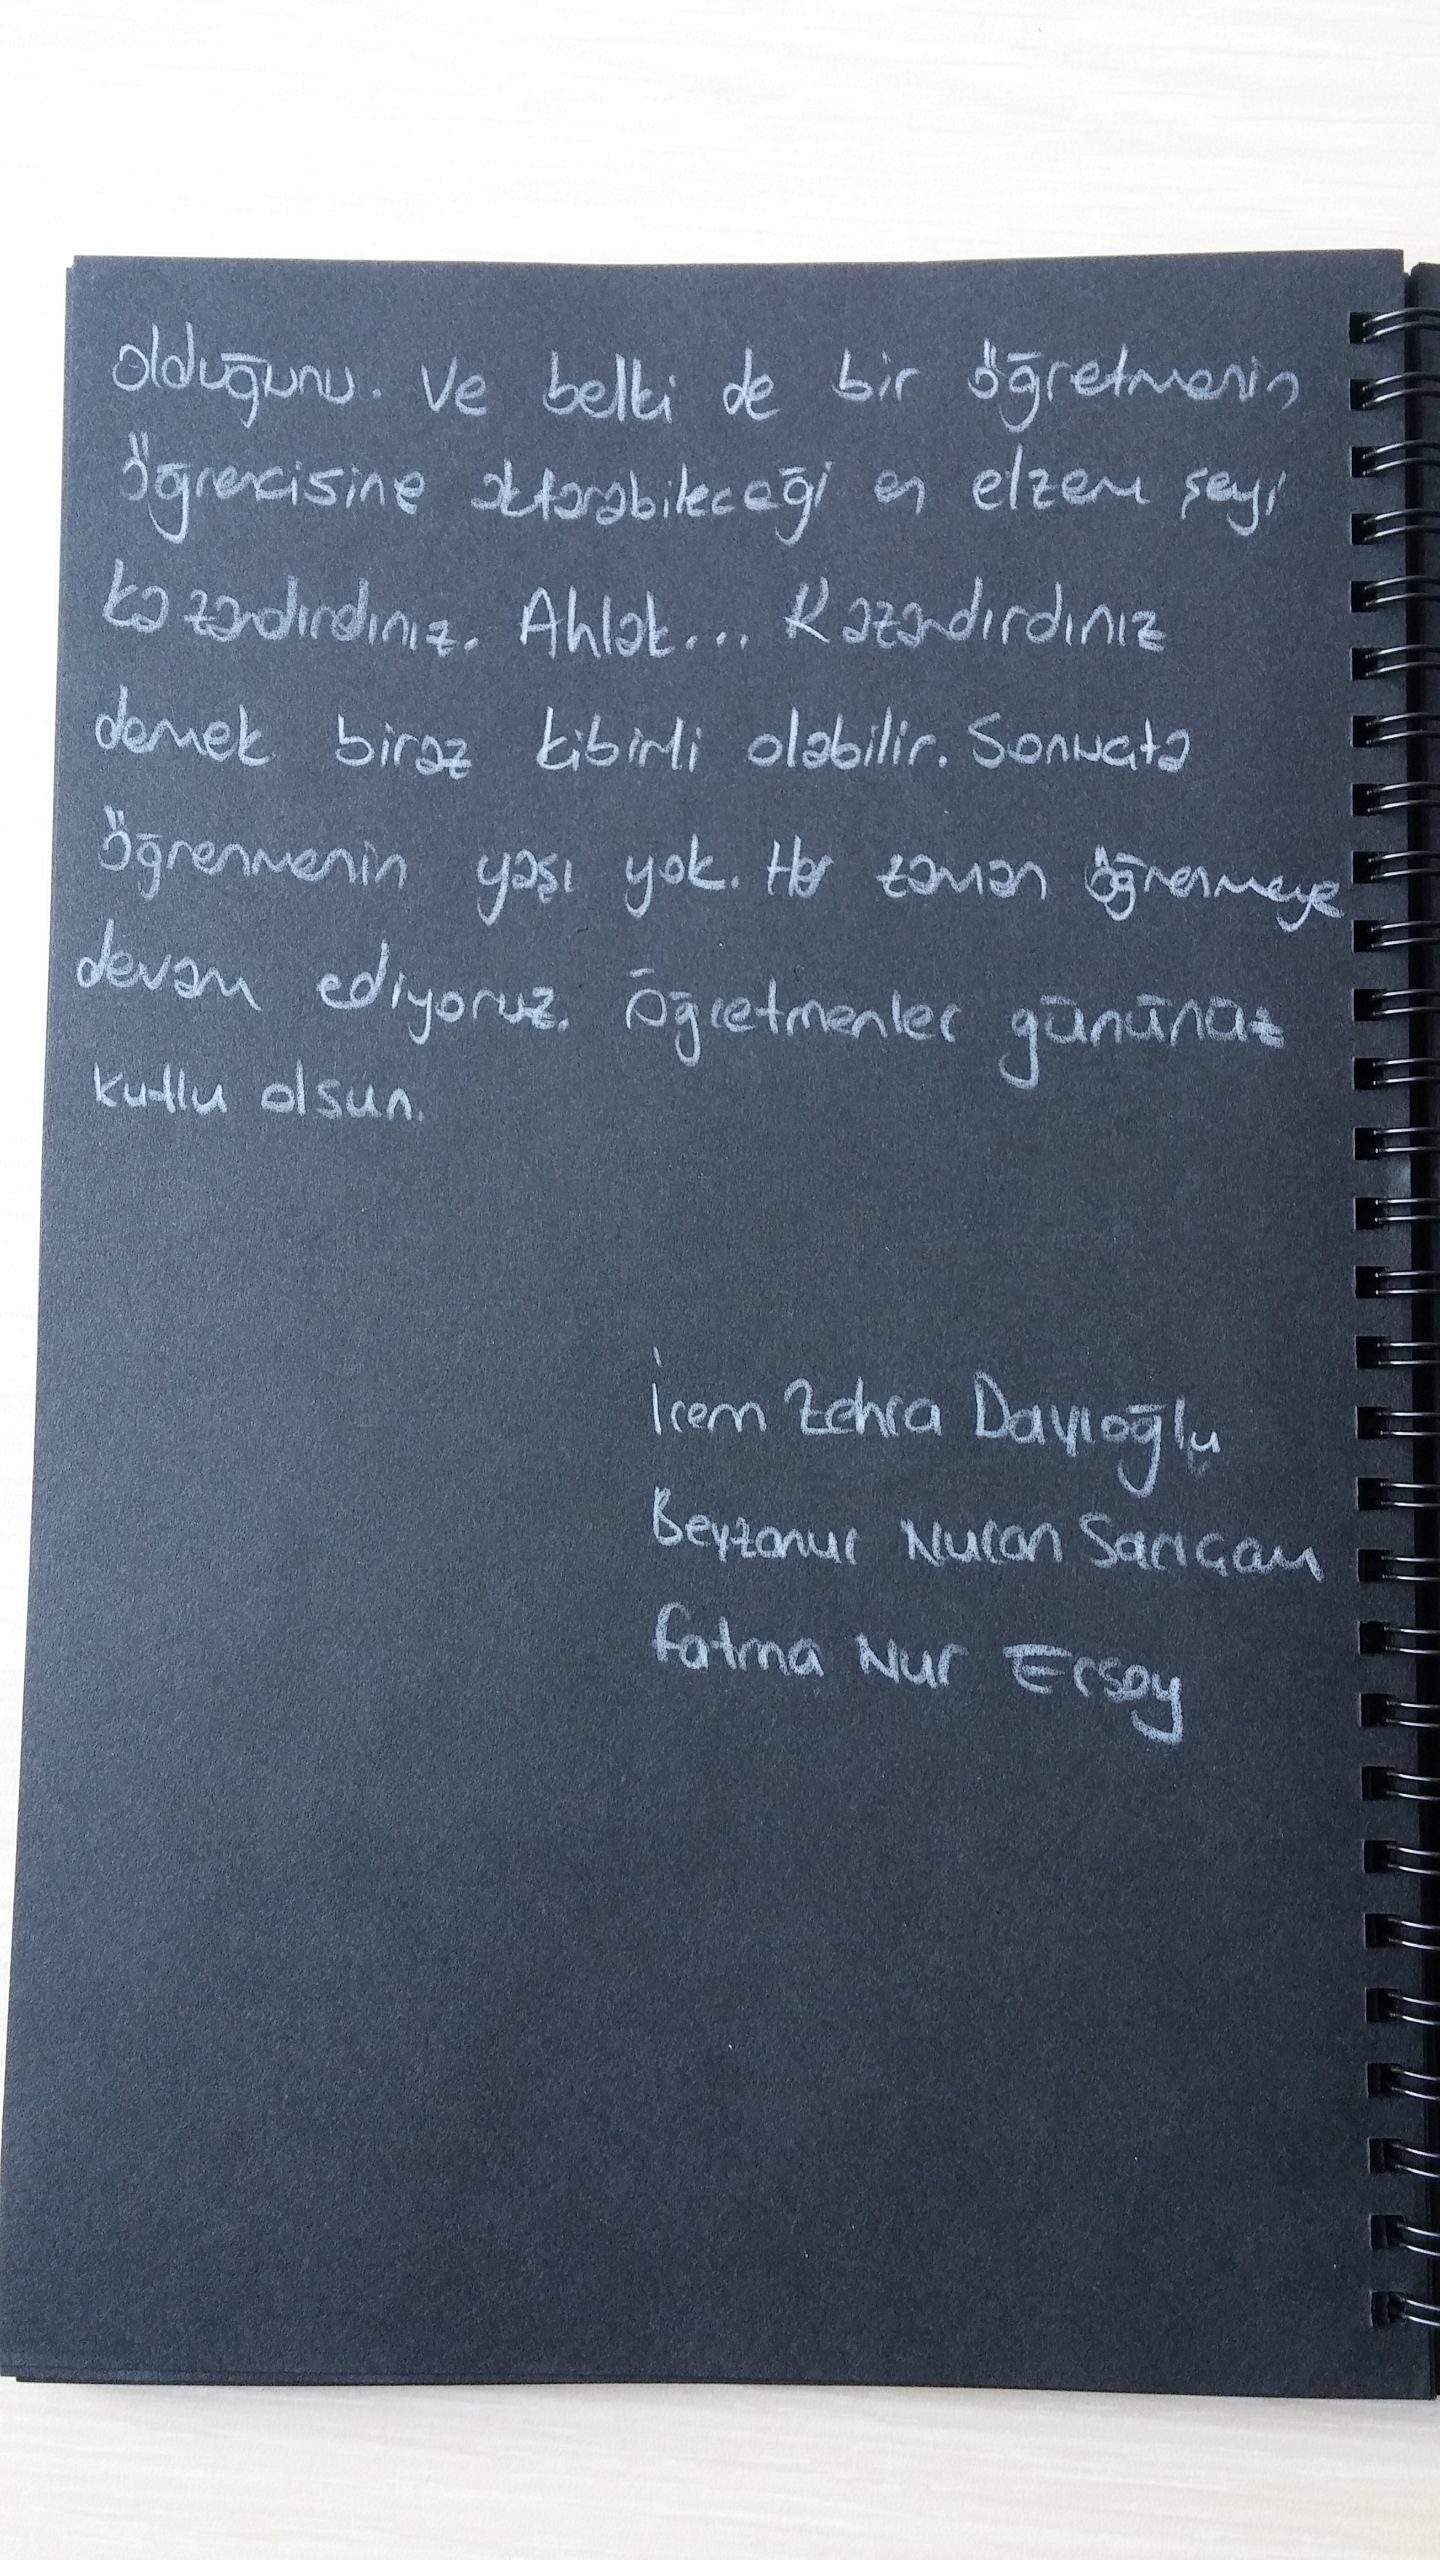 olduğunu. Ve belki de bir öğretmenin
öğrencisine aktarabileceği en elzem şeyi
kazandırdınız. Ahlak... Kazandırdınız
demek biraz kibirli olabilir. Sonuçta
öğrenmenin yaşı yok. Her zaman öğrenmeye
devam ediyoruz. Öğretmenler gününüz
kutlu olsun.
İrem Zehra Dayıoğlu
Beyzanur Nuran Sarıcam
Fatma Nur Ersoy